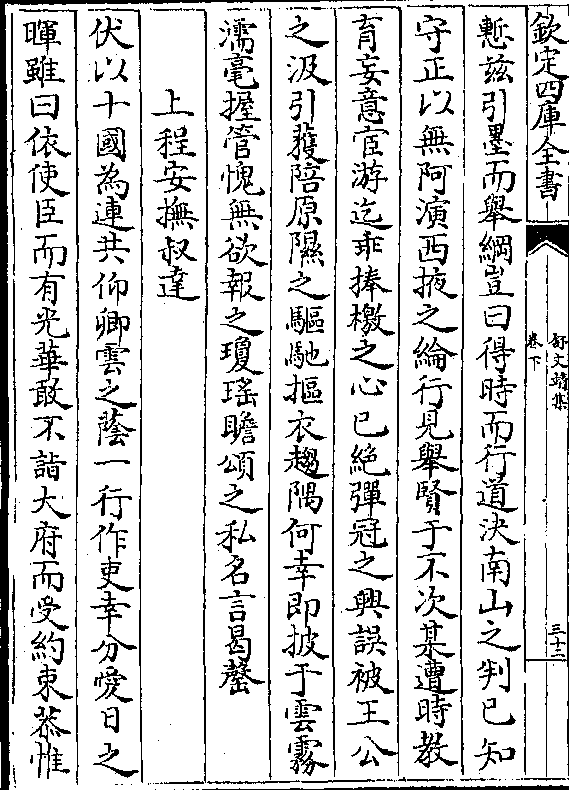 欽定四庫全書
舒文靖集
卷下
三十二
慙兹引墨而舉綱豈曰得時而行道決南山之判已知
守正以無阿演西掖之綸行見舉賢于不次某遭時教
育妄意宦游迄乖捧檄之心已絶彈冠之興誤被王公
之汲引獲陪原隰之驅馳摳衣趨隅何幸即披于雲霧
濡毫握管愧無欲報之瓊瑤瞻頌之私名言曷罄
上程安撫叔達
伏以十國為連共仰卿雲之蔭一行作吏幸分愛日之
暉雖曰依使臣而有光華敢不詣大府而受約束恭惟